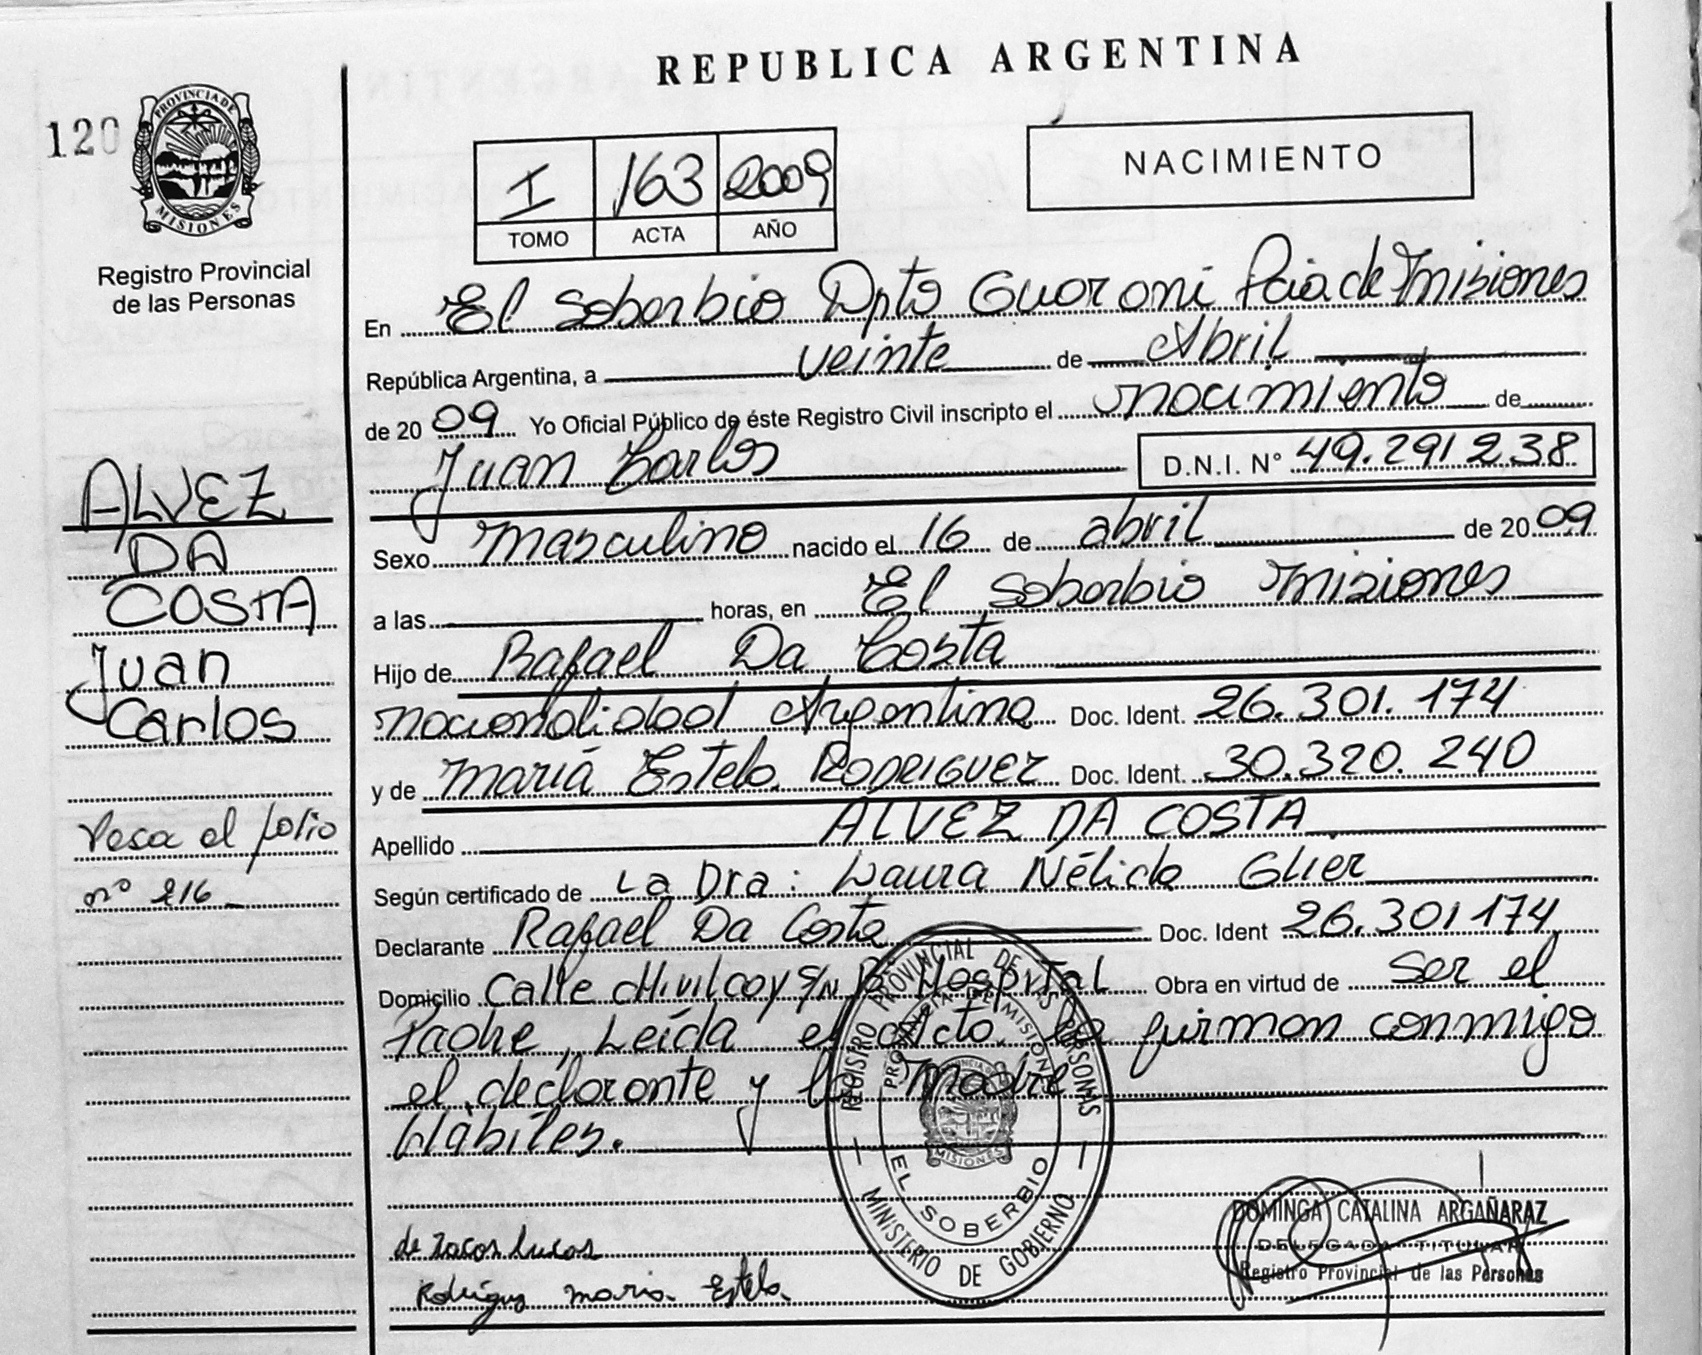 REPUBLICA ARGENTINA
120
PROVINCIA DE
MISIONES
Registro Provincial
de las Personas
I 163 2009
TOMO ACTA AÑO
NACIMIENTO
En El Soberbio Dpto Guarani Pcia de Misiones
República Argentina, a veinte de Abril
de 2009 Yo Oficial Público de éste Registro Civil inscripto el nacimiento de
Juan Carlos D.N.I. N° 49.291238
Sexo masculino nacido el 16 de abril de 2009
a las horas, en El Soberbio Misiones
Hijo de Rafael Da Costa
nacionalidad Argentina Doc. Ident. 26.301.174
y de Maria Estela RODRIGUEZ Doc. Ident. 30.320.240
Apellido ALVEZ DA COSTA
Según certificado de La Dra: Laura Nélida Glier
Declarante Rafael Da Costa Doc. Ident 26.301174
Domicilio Calle Chivilcoy S/N Bº Hospital Obra en virtud de Ser el
Padre, Leída el acta. La firman conmigo
el declarante y la Madre
Hábiles.
ALVEZ
DA
COSTA
Juan
Carlos
Pasa al folio
nº 216
REGISTRO PROVINCIAL DE LAS PERSONAS
PROVINCIA DE MISIONES
MISIONES
EL SOBERBIO
MINISTERIO DE GOBIERNO
Rodrigus maria Estela
DOMINGA CATALINA ARGAÑARAZ
DELEGADA TITULAR
Registro Provincial de las Personas